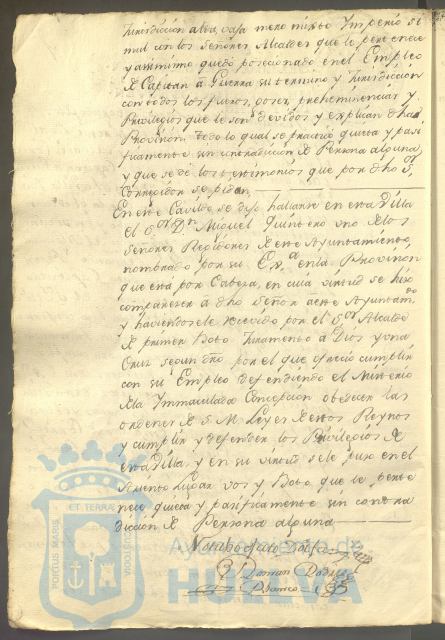 Jurisdiccion alta, vaja mero mixto Imperio si
mul con los Señores Alcaldes que le pertenece
y assimismo quedó posecionado en el Empleo
de Capitan a Guerra su termino y Jurisdiccion
con todos los fueros, goses, preheminencias y
Privilegios que le son devidos y explican dha
Provision. todo lo qual se practicó quieta y pasi
ficamente sin contradicion de Persona alguna
y que se de los testimonios que por dho Sor
Corregidor se pidan
En este Cavildo se dijo hallarse en esta Villa
el Sor Dn Miguel Quintero uno de los
Señores Regidores de este Ayuntamiento,
nombrado por su Exa en la Provision
que esta por Cabeza, en cuia virtud se hizo
comparecer a dho Señor a este Ayuntamto
y haviendosele recevido por el Sor Alcalde
de primer Boto Juramento a Dios y una
Cruz segun dro por el que ofreció cumplir
con su Empleo defendiendo el Misterio
de la Immaculada Concepcion obedecer las
ordenes de S. M. Leyes de estos Reynos
y cumplir y defender los Privilegios de
esta Villa, y en su virtud se le puso en el
Asiento Lugar vos y Boto que le perte
nece quieta y pasificamente sin contra
dicion de Persona alguna
PORTUS MARIS ET TERRAE CUSTODIA
Ayuntamiento de
HUELVA
Damian
Blanco